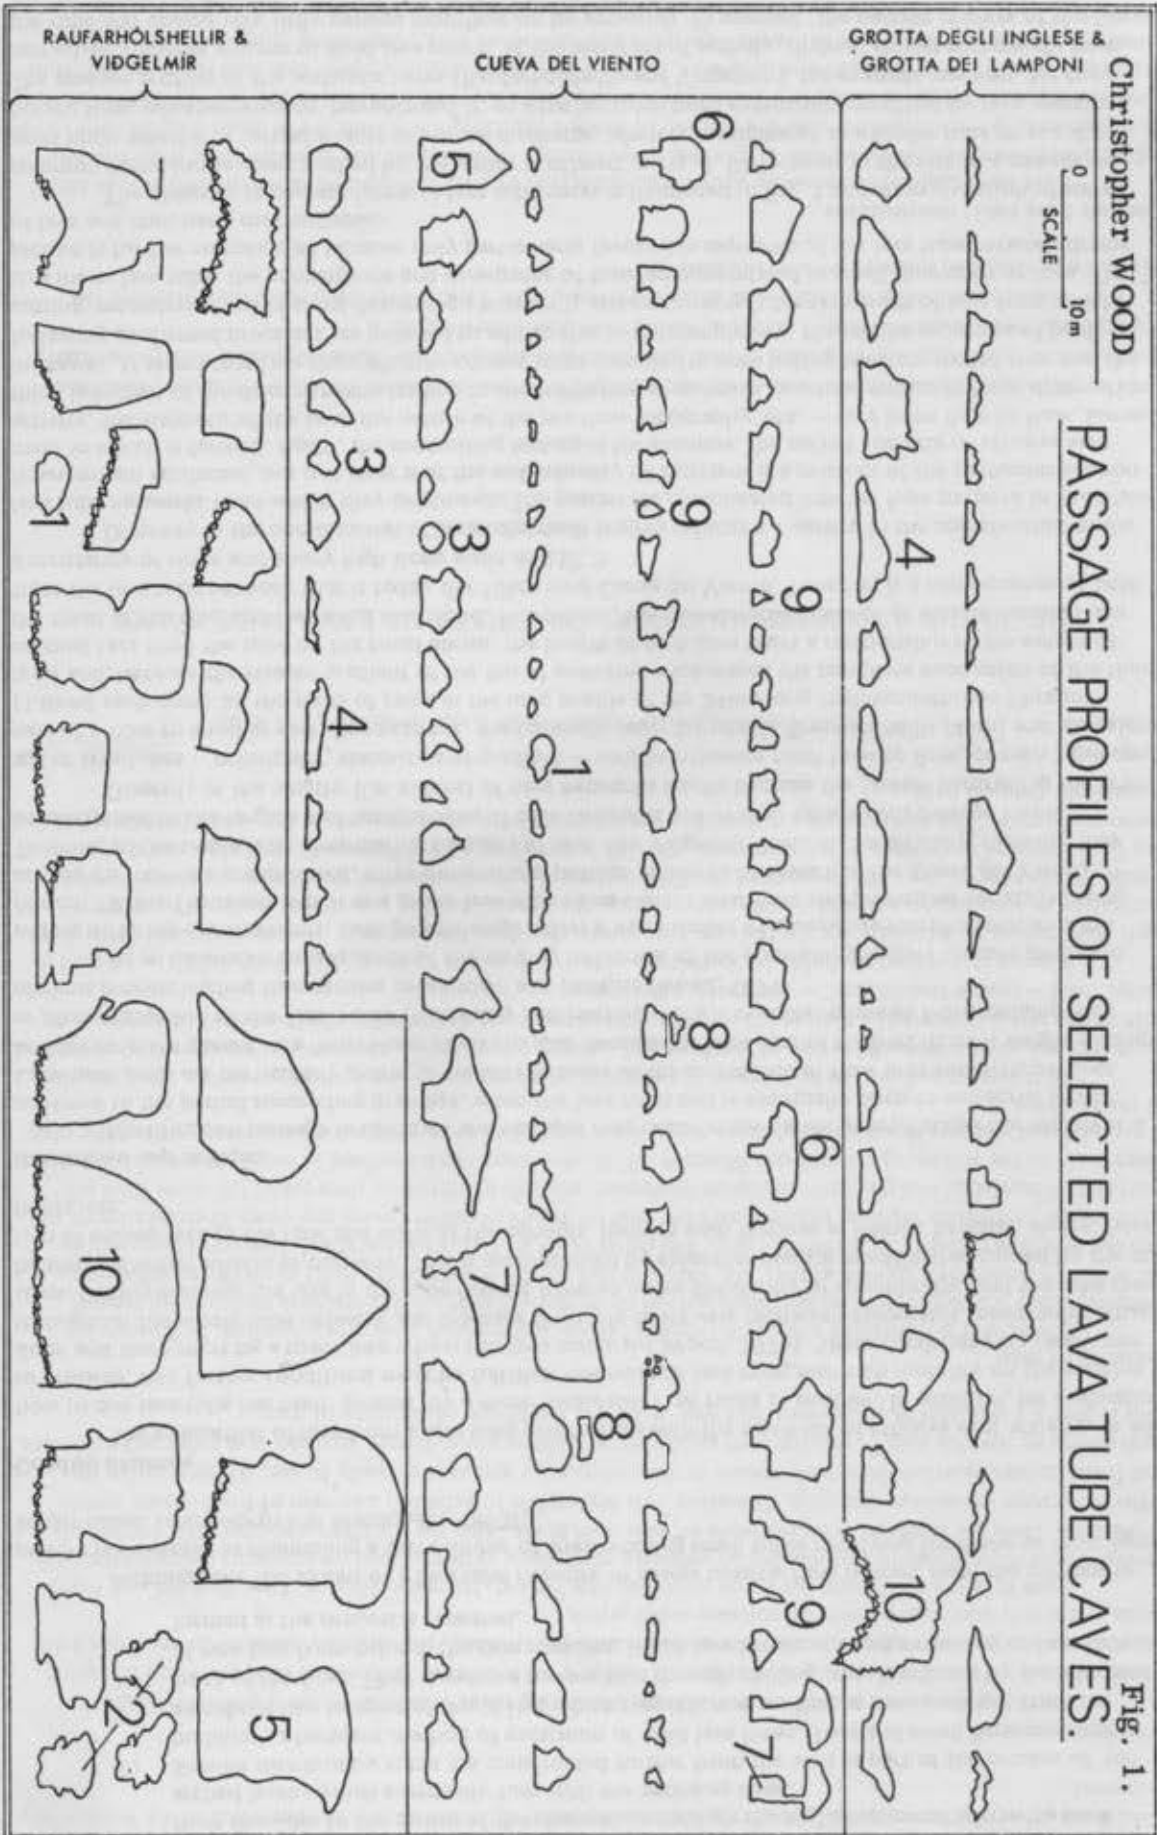 Christopher WOOD
Fig. 1.
PASSAGE PROFILES OF SELECTED LAVA TUBE CAVES.
SCALE
0 10m
GROTTA DEGLI INGLESE &
GROTTA DEI LAMPONI
4
10
CUEVA DEL VIENTO
9
6
9
7
6
9
8
1
8
5
3
7
3
4
RAUFARHÓLSHELLIR &
VIDGELMÍR
5
1
10
2